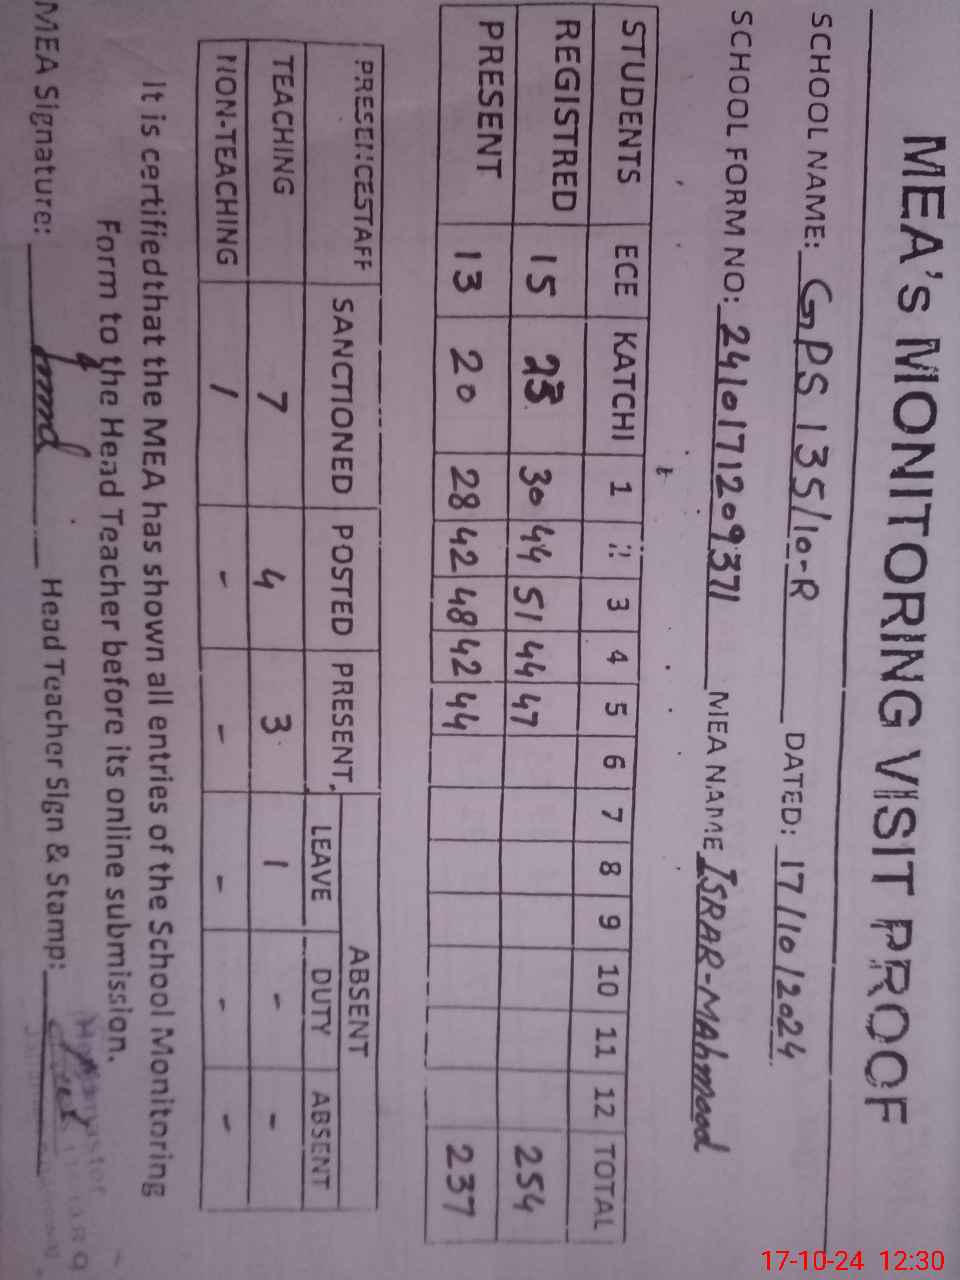 MEA's MONITORING VISIT PROOF
SCHOOL NAME: GPS 135/10-R DATED: 17/10/2024
SCHOOL FORM NO: 2410171209371 MEA NAME ISRAR-MAhmood
STUDENTS ECE KATCHI 1 2 3 4 5 6 7 8 9 10 11 12 TOTAL
REGISTRED 15 23 30 44 51 44 47 254
PRESENT 13 20 28 42 48 42 44 237
PRESENCESTAFF SANCTIONED POSTED PRESENT ABSENT
LEAVE DUTY ABSENT
TEACHING 7 4 3 1 - -
NON-TEACHING / - - - - -
It is certifiedthat the MEA has shown all entries of the School Monitoring
Form to the Head Teacher before its online submission.
MEA Signature: Head Teacher Sign & Stamp:
17-10-24 12:30